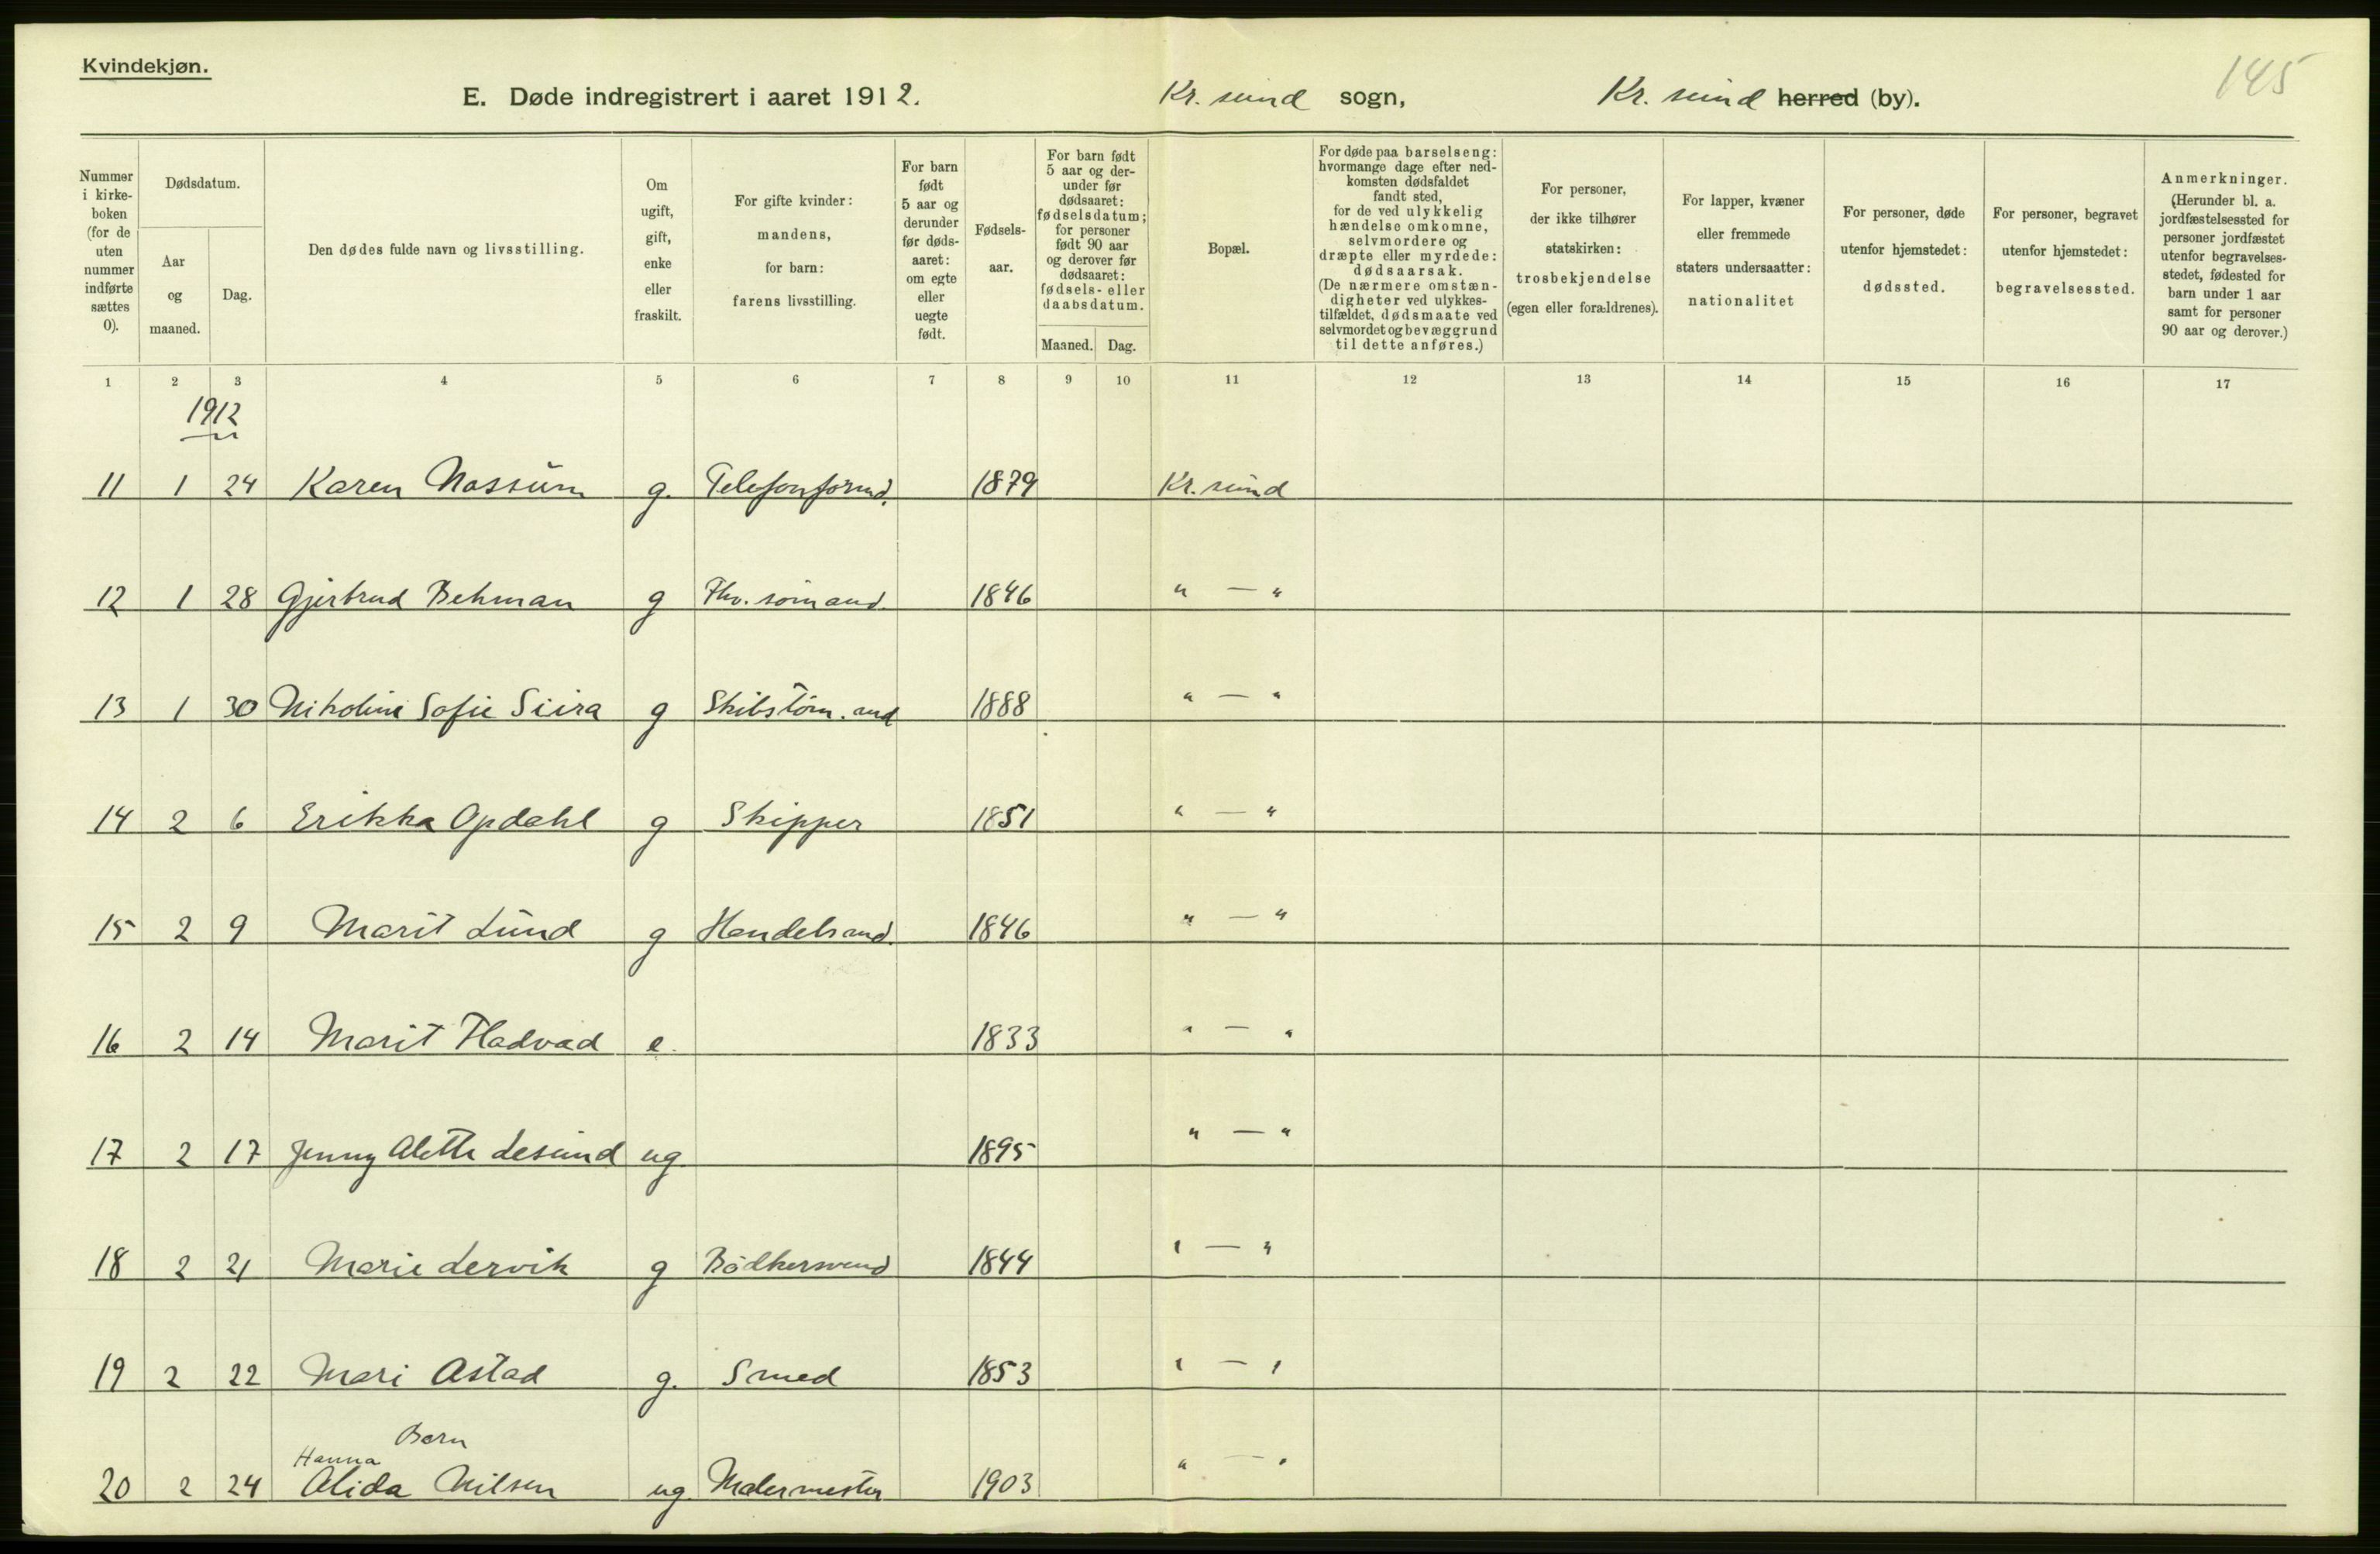 Kvindekjøn.
145
E. Døde indregistrert i aaret 1912. Kr. sund sogn, Kr. sund herred (by).
Nummer i kirke- boken (for de uten nummer indførte sættes 0).
Dødsdatum.
Aar og maaned.
Dag.
Den dødes fulde navn og livsstilling.
Om ugift, gift, enke eller fraskilt.
For gifte kvinder: mandens, for barn: farens livsstilling.
For barn født 5 aar og derunder før døds- aaret: om egte eller uegte født.
Fødsels- aar.
For barn født 5 aar og der- under før dødsaaret: fødselsdatum; for personer født 90 aar og derover før dødsaaret: fødsels- eller daabsdatum.
Maaned. Dag.
Bopæl.
For døde paa barselseng: hvormange dage efter ned- komsten dødsfaldet fandt sted, for de ved ulykkelig hændelse omkomne, selvmordere og dræpte eller myrdede: dødsaarsak. (De nærmere omstæn- digheter ved ulykkes- tilfældet, dødsmaate ved selvmordet og bevæggrund til dette anføres.)
For personer, der ikke tilhører statskirken: trosbekjendelse (egen eller forældrenes).
For lapper, kvæner eller fremmede staters undersaatter: nationalitet
For personer, døde utenfor hjemstedet: dødssted.
For personer, begravet utenfor hjemstedet: begravelsessted.
Anmerkninger. (Herunder bl. a. jordfæstelsessted for personer jordfæstet utenfor begravelses- stedet, fødested for barn under 1 aar samt for personer 90 aar og derover.)
1 2 3 4 5 6 7 8 9 10 11 12 13 14 15 16 17
1912
11 1 24 Karen Nassum g. Telefonformd. 1879 Kr. sund
12 1 28 Gjertrud Behman g Fhv. sömand 1846 " — "
13 1 30 Nikoline Sofie Siira g Skibstöm. and 1888 " — "
14 2 6 Erikka Opdahl g Skipper 1851 " — "
15 2 9 Marit Lund g Handelsmd. 1846 " — "
16 2 14 Marit Fladvad e. 1833 " — "
17 2 17 Jenny Alette Lesund ug 1895 " — "
18 2 21 Marie Lervik g Bödkersvend 1844 " — "
19 2 22 Mari Astad g. Smed 1853 " — "
Barn
Hanna
20 2 24 Alida Nilsen ug. Malermester 1903 " — "